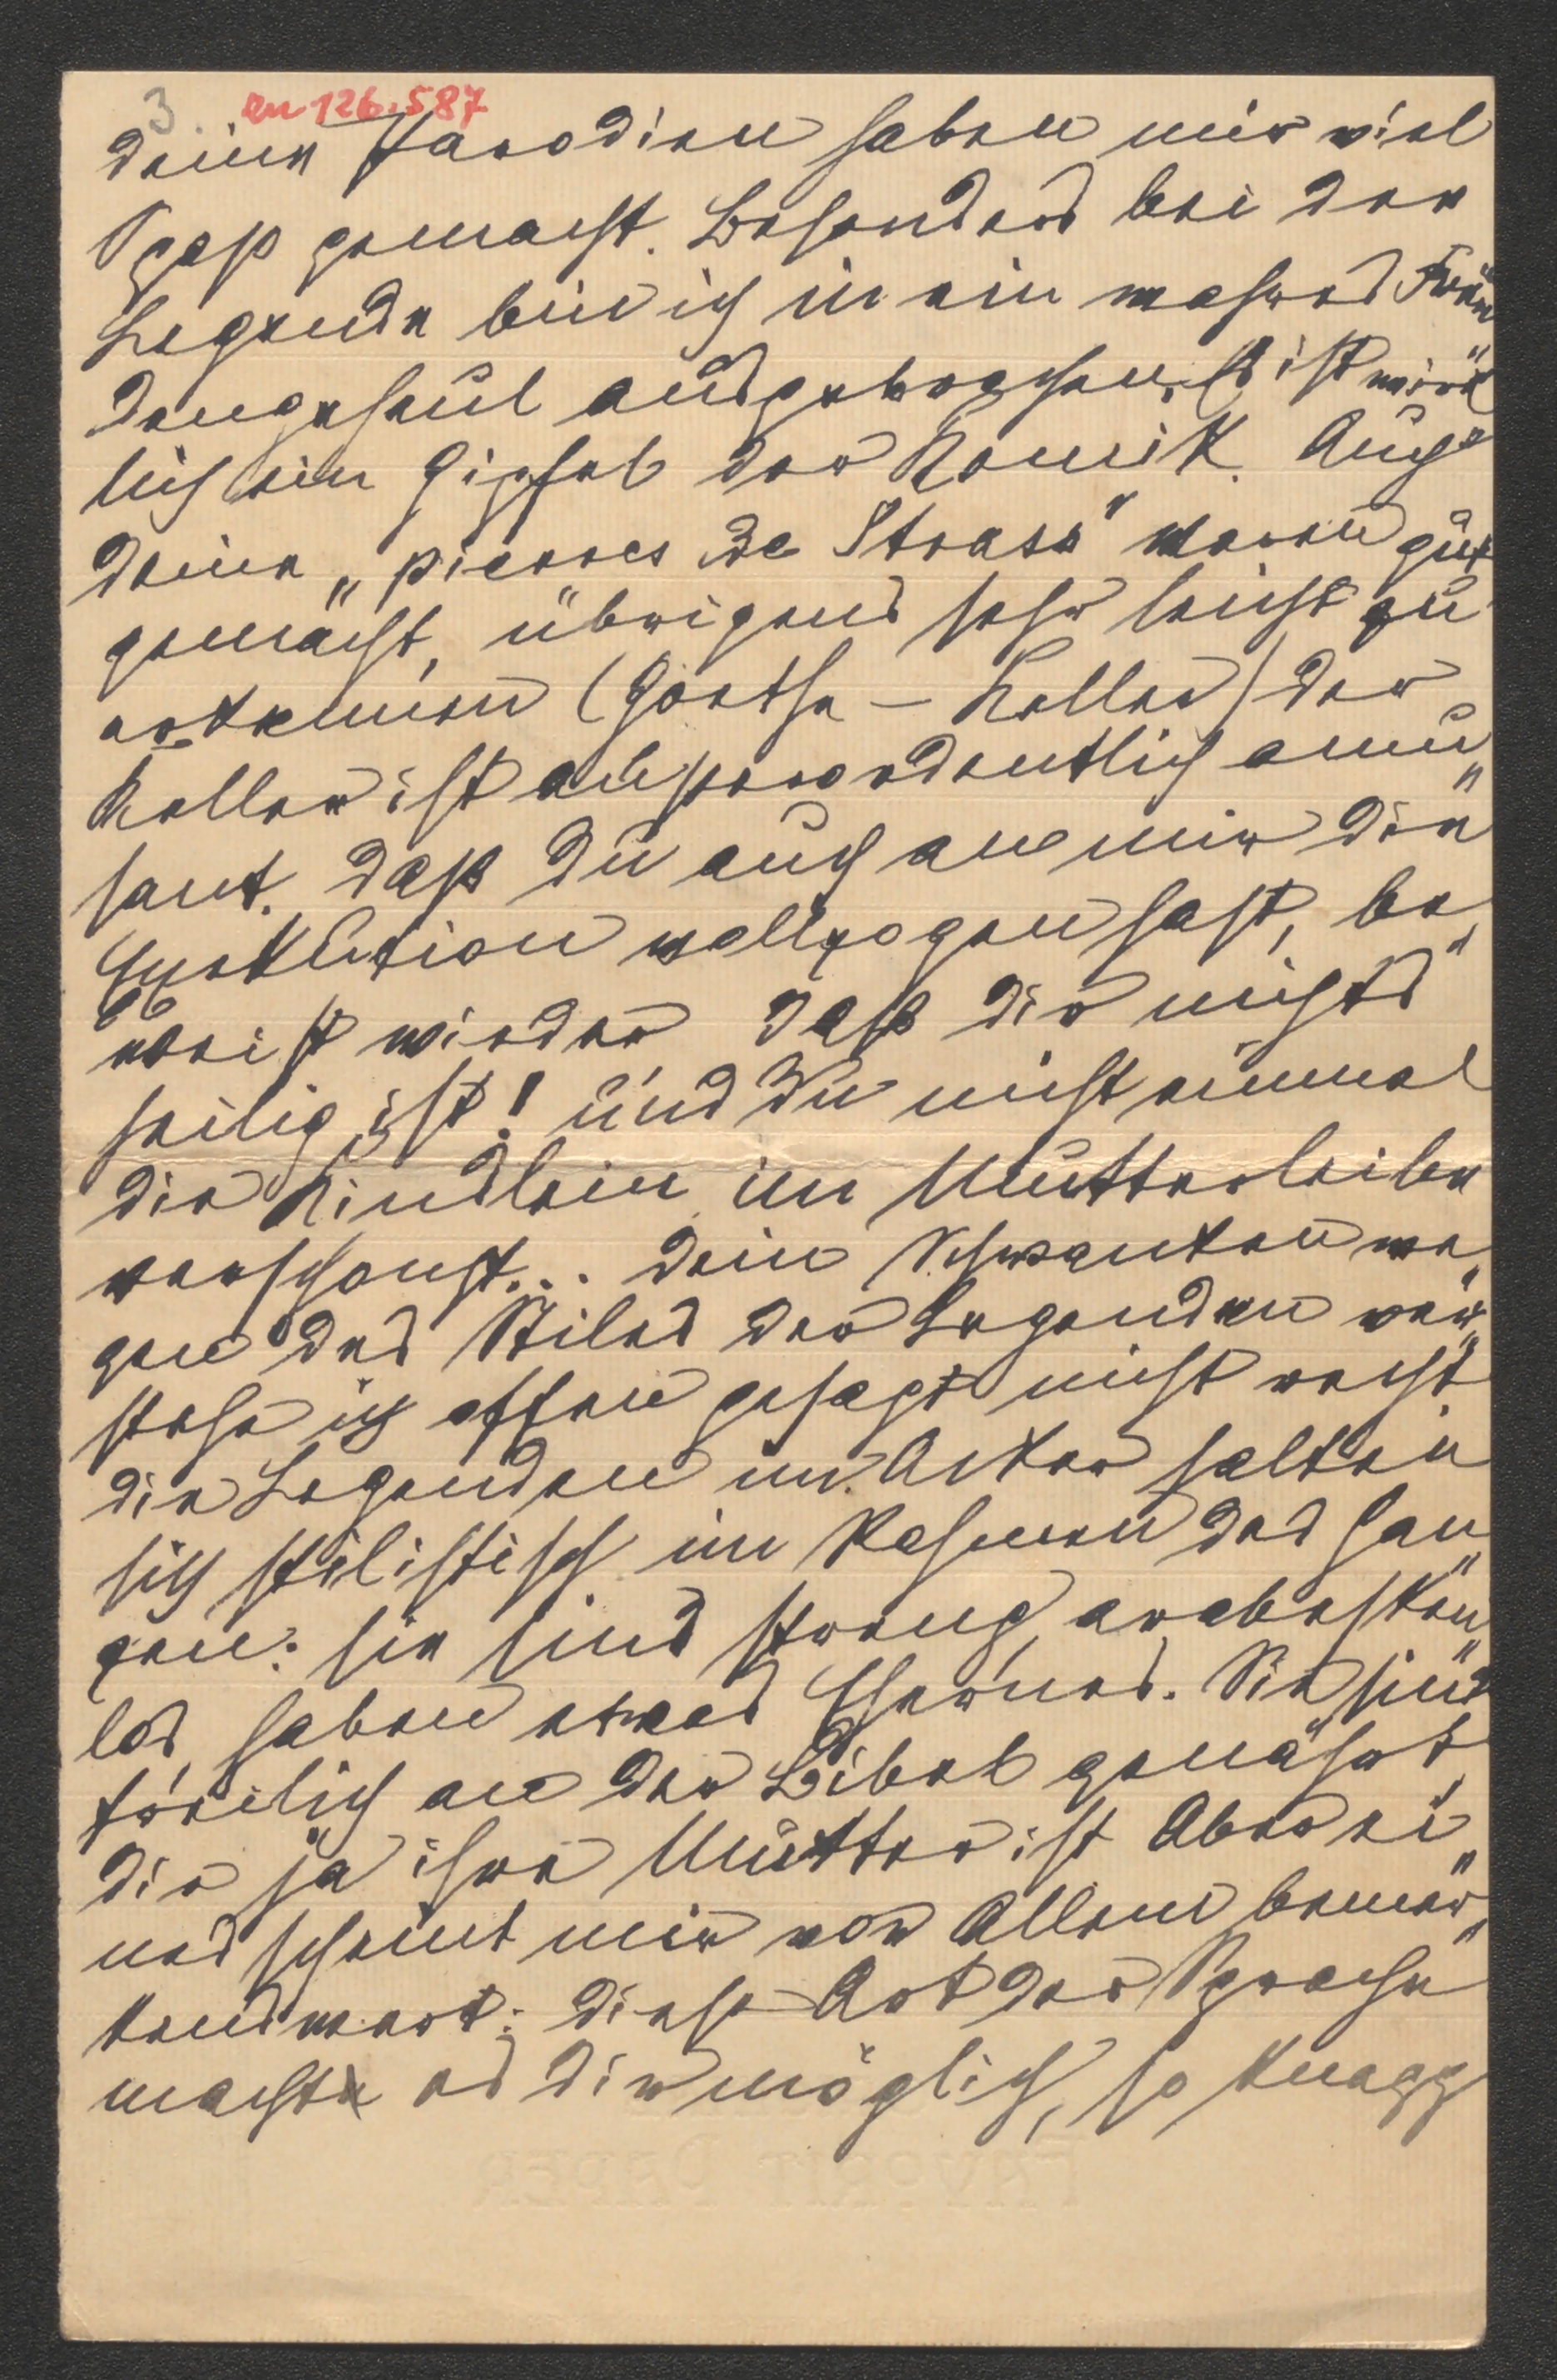 3. zu 126.587
Deine Parodien haben mir viel
Spaß gemacht. Besonders bei der
Legende bin ich in ein wahres Freu„
dengeheul ausgebrochen, Es ist wirk„
lich ein Gipfel der Komik. Auch
deine „pierres de Strass" waren gut
gemacht, übrigens sehr leicht zu
erkennen (Goethe – Keller) der
Keller ist außerordentlich amü„
sant. Daß Du auch an mir die
Exekution vollzogen hast, be„
weist wieder daß dir nichts
heilig ist! und Du nicht einmal
die Kindlein im Mutterleibe
verschonst... Dein Schwanken we„
gen des Stiles der Legenden ver„
stehe ich offen gesagt nicht recht.
die Legenden im Acker halten
sich stilistisch im Rahmen des Gan„
zen: sie sind streng, arabesken„
los, haben etwas Ehernes. Sie sind
freilich an der Bibel genährt,
die ja ihre Mutter ist Aber ei„
nes scheint mir vor Allem bemer„
kenswert: diese Art der Sprache
machte es dir möglich, so knapp